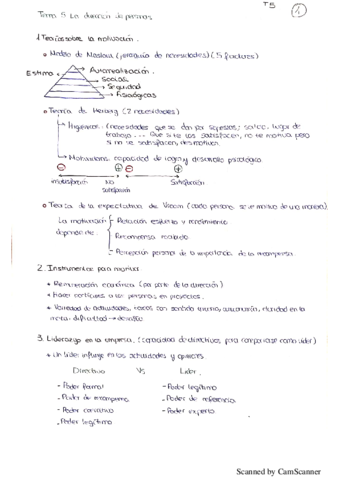 T5
1
Tema 5 La dirección de personas
1. Teorías sobre la motivación.
• Modelo de Maslow (jerarquía de necesidades) (5 factores)
Autorrealización
Estima
Sociales
Seguridad
Fisiológicas
• Teoría de Herzberg (2 necesidades)
Higiénicos. (necesidades que se dan por supuestas; salario, lugar de
trabajo ... Que si te las satisfacen, no te motiva pero
si no se satisfacen, desmotivan.
Motivadores. capacidad de logro y desarrollo psicológico
insatisfacción No satisfacción Satisfacción
• Teoría de la expectativa de Vroom (cada persona se motiva de una manera).
La motivación depende de: Relación esfuerzo y rendimiento
Recompensa
Percepción personal de la importancia de la recompensa.
2. Instrumentos para motivar
• Remuneración económica (por parte de la dirección)
• Hacer partícipes a las personas en proyectos.
• Variedad de actividades, tareas con sentido
meta. dificultad → desafío
3. Liderazgo en la empresa. (capacidad de directivos, para comportarse como líder)
• Un líder influye en las actividades y opiniones.
Directivo Vs Líder.
- Poder formal - Poder legítimo
- Poder de recompensa - Poder de referencia
- Poder coercitivo - Poder experto
- Poder legítimo
Scanned by CamScanner